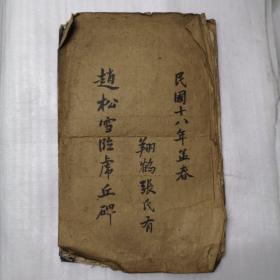 民國十八年孟春
翔鶴張氏有
趙松雪臨虎丘碑